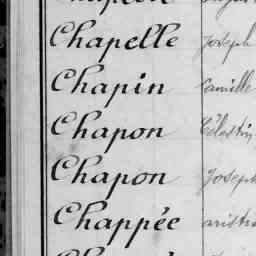 Chapelle Joseph
Chapin Camille
Chapon Célestin
Chapon Joseph
Chappée